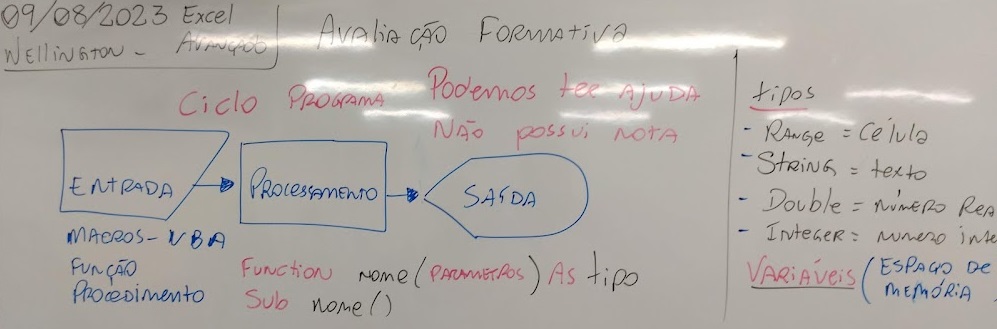 09/08/2023 Excel
Wellington - Avançado
Avaliação Formativa
Ciclo Programa
Podemos ter ajuda
Não possui nota
Entrada
Processamento
Saída
Macros - VBA
Função
Procedimento
Function nome (parametros) As tipo
Sub nome ()
tipos
- Range = Célula
- String = texto
- Double = número Rea
- Integer = numero inte
Variáveis (Espaço de
memória